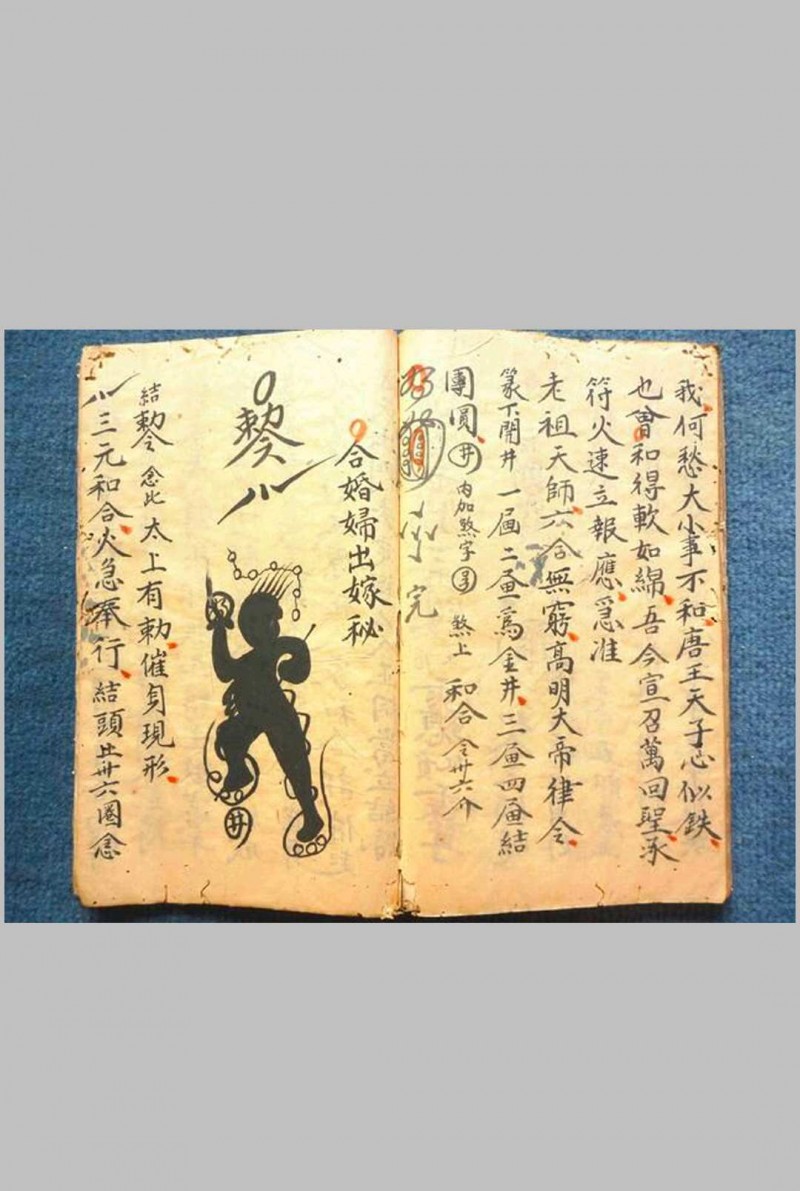 我何愁大小事不和唐王天子心似鉄
也會和得軟如綿吾今宣召萬回聖承
符火速立報應急准
老祖天師六合無窮高明大帝律令
篆下開井一畐二畐為金井三畐四畐結
團圓井内加煞字煞上和合全卅六介
完
合婚婦出嫁秘
井
結念此太上有勅催身現形
三元和合火急奉行結頭卅六圈念